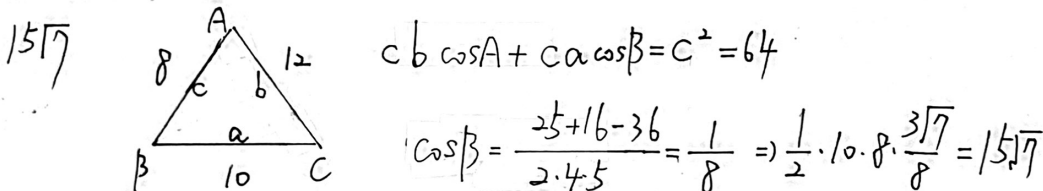 15√7
A
8 c b 12
B a C
10
cb cosA + ca cosB = C² = 64
cosB = (25+16-36)/(2·4·5) = 1/8 ⇒ 1/2 · 10 · 8 · 3√7/8 = 15√7